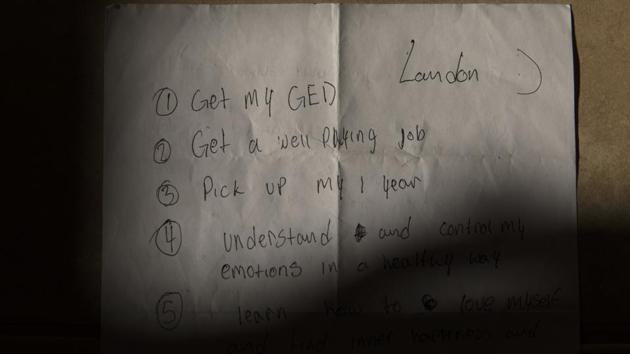 Landon :)
① Get my GED
② Get a well paying job
③ Pick up my 1 year
④ understand and control my
emotions in a healthy way
⑤ learn how to love myself
and find inner happiness and